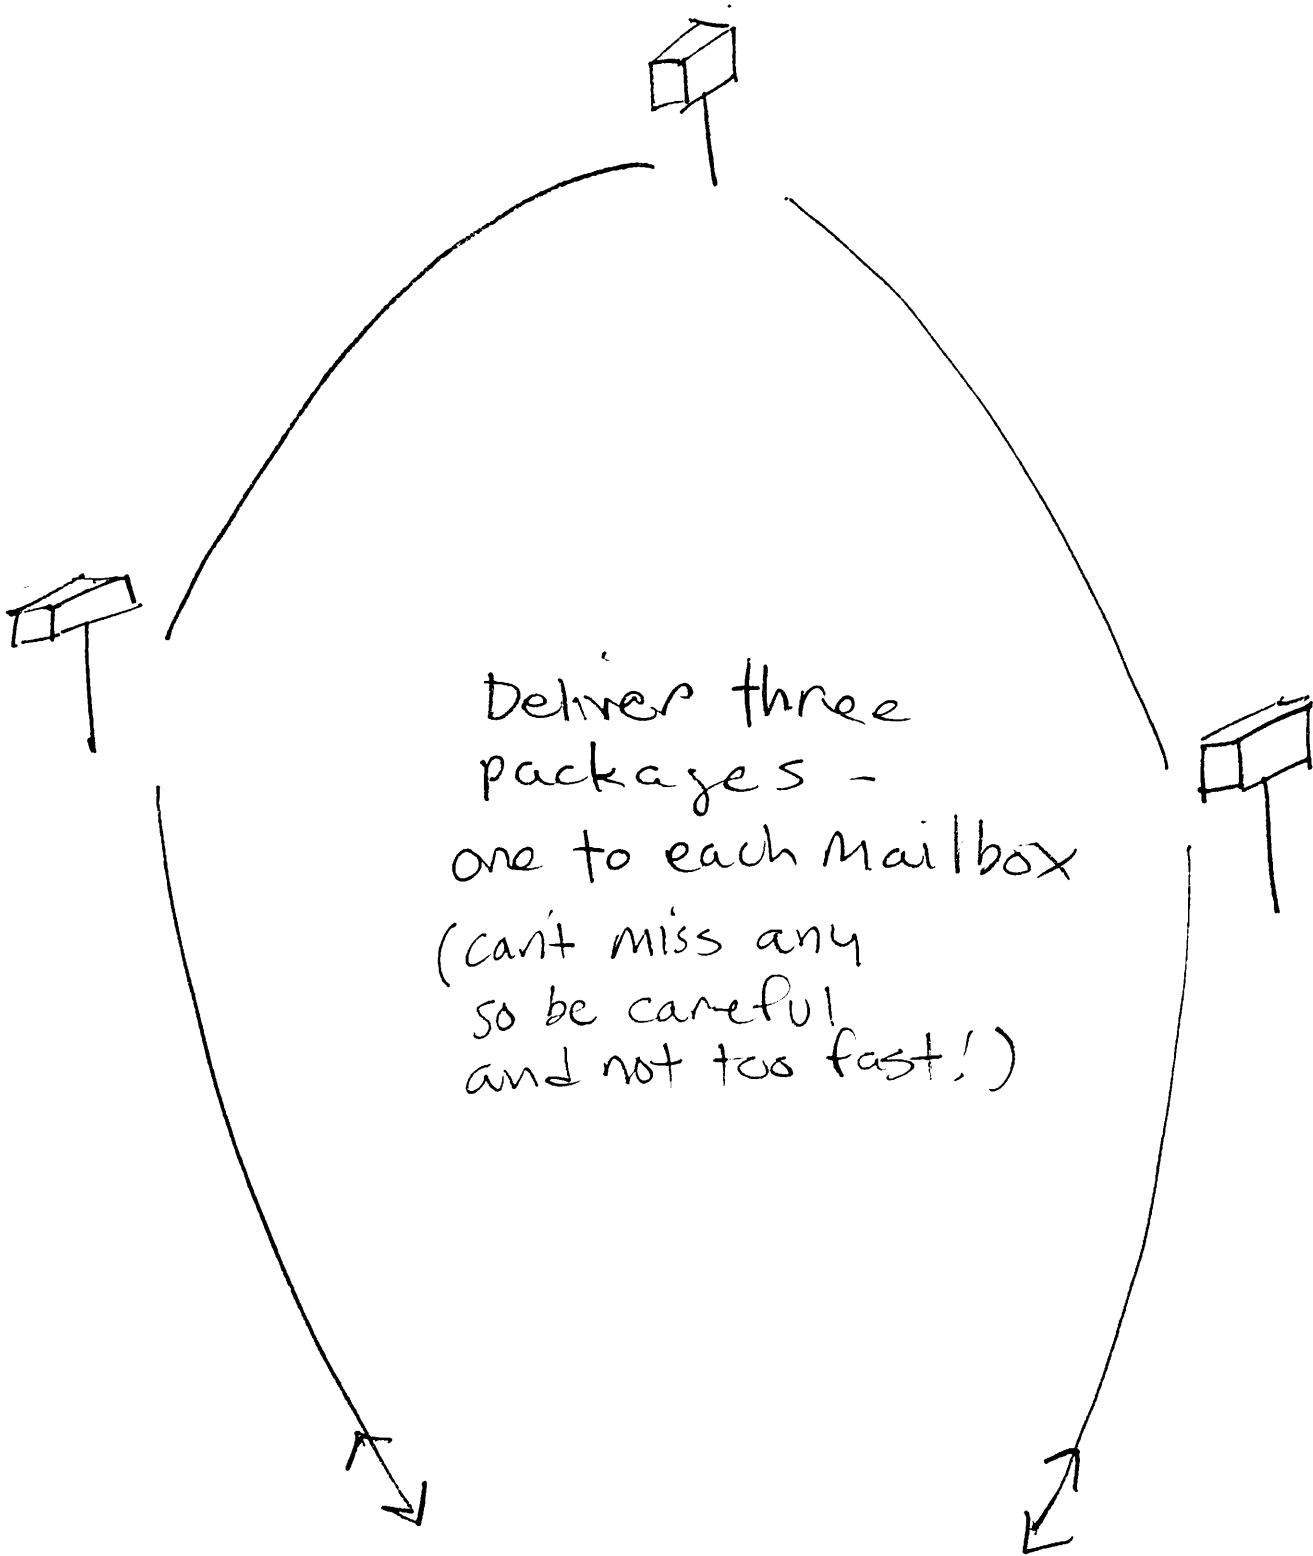 Deliver three
packages -
one to each Mailbox
(can't miss any
so be careful
and not too fast!)